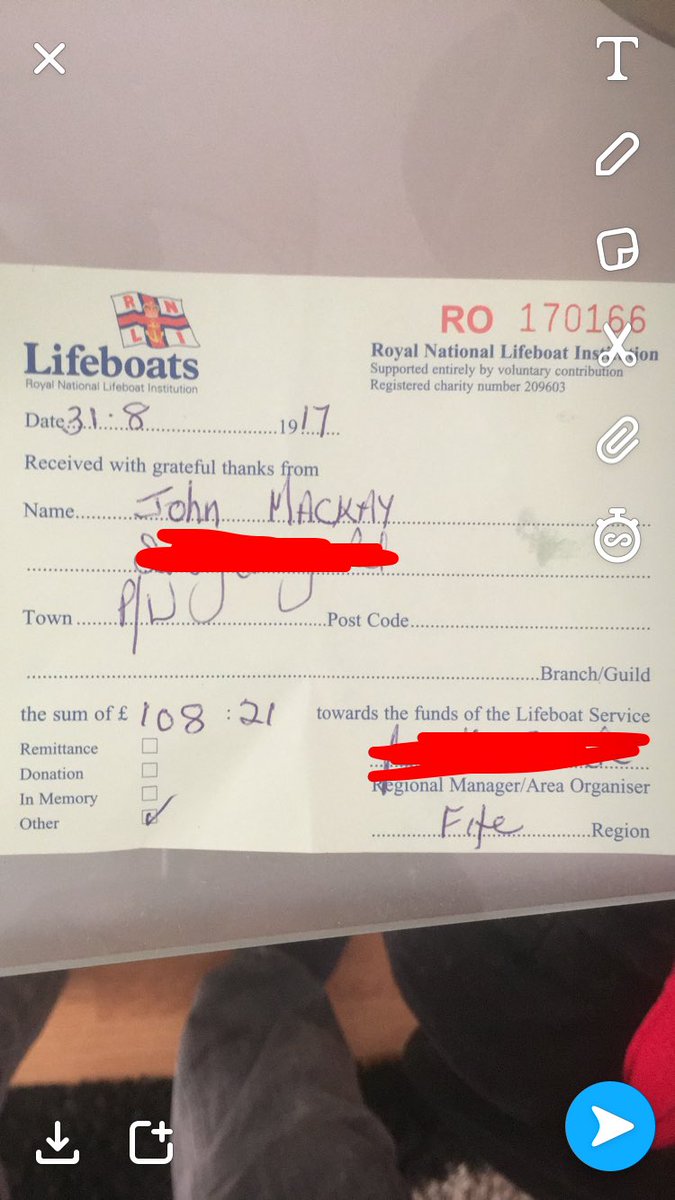 T
R N
L I
Lifeboats
Royal National Lifeboat Institution
RO 170166
Royal National Lifeboat Institution
Supported entirely by voluntary contribution
Registered charity number 209603
Date 31.8 1917
Received with grateful thanks from
Name John MACKAY
Town P/W Post Code
Branch/Guild
the sum of £ 108 : 21 towards the funds of the Lifeboat Service
Remittance
Donation
In Memory
Other
Regional Manager/Area Organiser
Fife Region